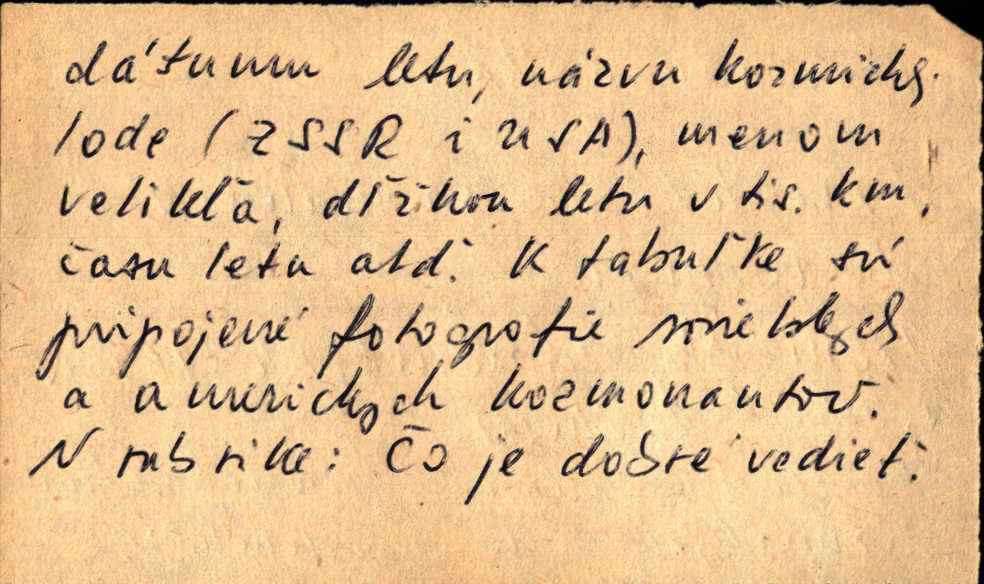 dátumu letu, názvu kozmickej
lode (ZSSR i USA), menom
veliteľa, dĺžkou letu v tis. km,
času letu atď. K tabuľke sú
pripojené fotografie sovietskych
a amerických kozmonautov.
V rubrike: Čo je dobré vedieť.